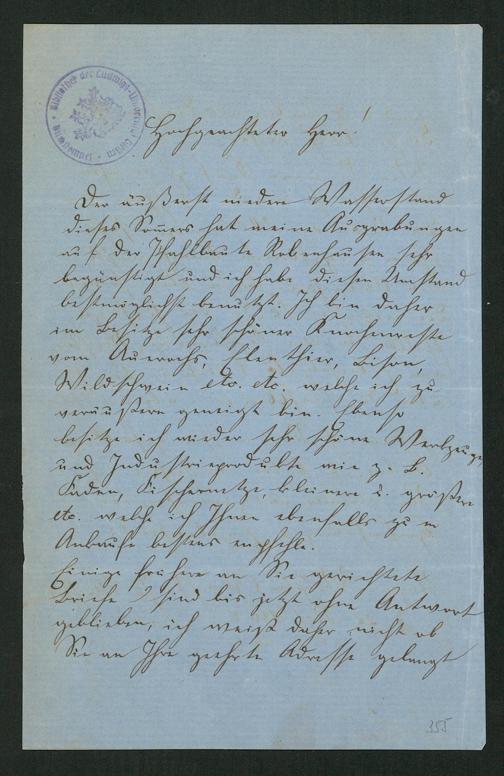 Bibliothek der Ludwigs-Universität Giessen
Handschr.
Hochgeachteter Herr!
Der äußerst niedere Wasserstand
dieses Sommers hat meine Ausgrabungen
auf der Pfahlbaute Robenhausen sehr
begünstigt und ich habe diesen Umstand
bestmöglichst benutzt. Ich bin daher
im Besitze sehr schöner Knochenreste
vom Auerochs, Elenthier, Bison,
Wildschwein etc. etc. welche ich zu
veräußern geneigt bin. Ebenso
besitze ich wieder sehr schöne Werkzeuge
und Industrieprodukte wie z. B.
Faden, Fischernetze, kleinere u. größere
etc. welche ich Ihnen ebenfalls zum
Ankaufe bestens empfehle.
Einige frühere an Sie gerichtete
Briefe sind bis jetzt ohne Antwort
geblieben, ich weiß daher nicht ob
Sie an Ihre geehrte Adresse gelangt
355